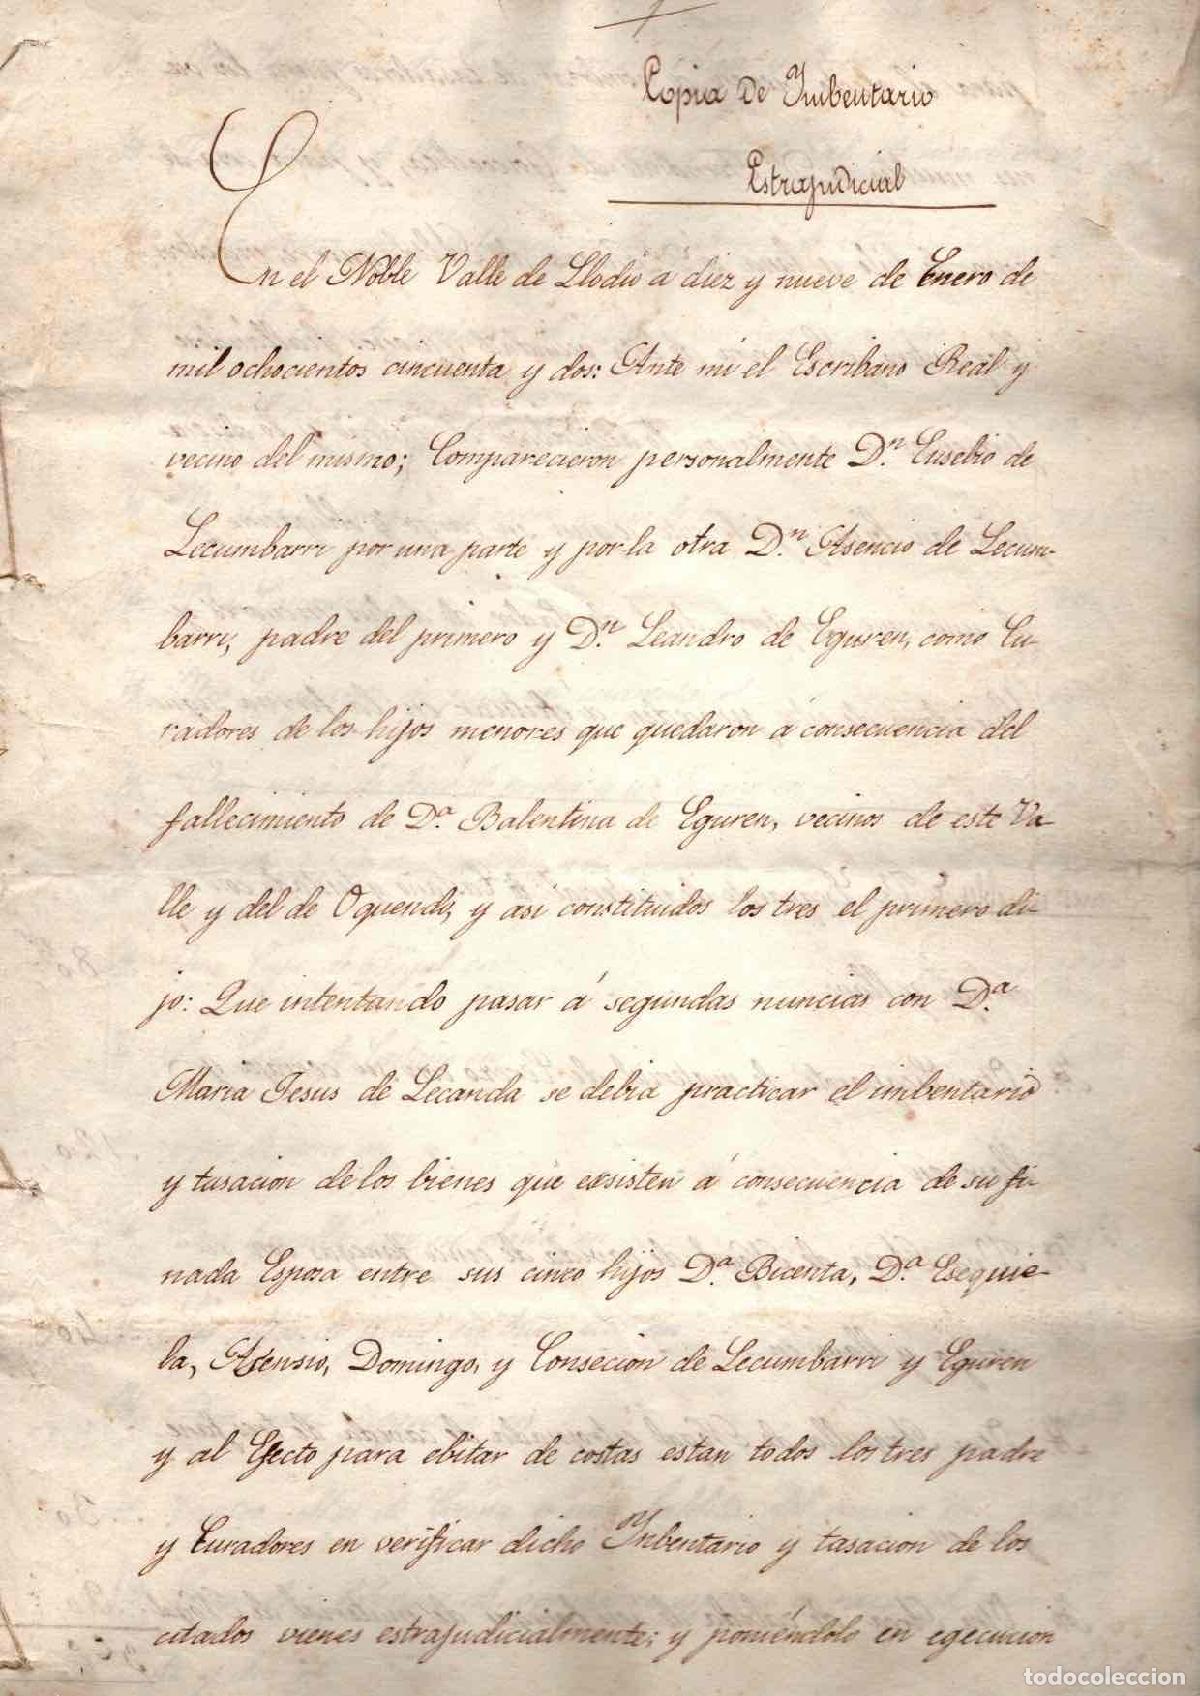 Copia de Imbentario
Estrajudicial
En el Noble Valle de Llodio á diez y nueve de Enero de
mil ochocientos cincuenta y dos: Ante mi el Escribano Real y
vecino del mismo; Comparecieron personalmente D.n Eusebio de
Lecumbarri por una parte y por la otra D.n Asencio de Lecum-
barri, padre del primero y D.n Leandro de Eguren, como Cu-
radores de los hijos menores que quedaron á consecuencia del
fallecimiento de D.a Balentina de Eguren, vecinos de este Va-
lle y del de Oquendo, y asi constituidos los tres el primero di-
jo: Que intentando pasar á segundas nuncias con D.a
Maria Jesus de Lecanda se debia practicar el imbentario
y tasacion de los bienes que exsisten á consecuencia de su fi-
nada Esposa entre sus cinco hijos D.a Bicenta, D.a Esequie-
la, Asensio, Domingo, y Consecion de Lecumbarri y Eguren
y al Efecto para ebitar de costas estan todos los tres padre
y Curadores en verificar dicho Inbentario y tasacion de los
citados vienes estrajudicialmente; y poniéndolo en egecucion
todocoleccion